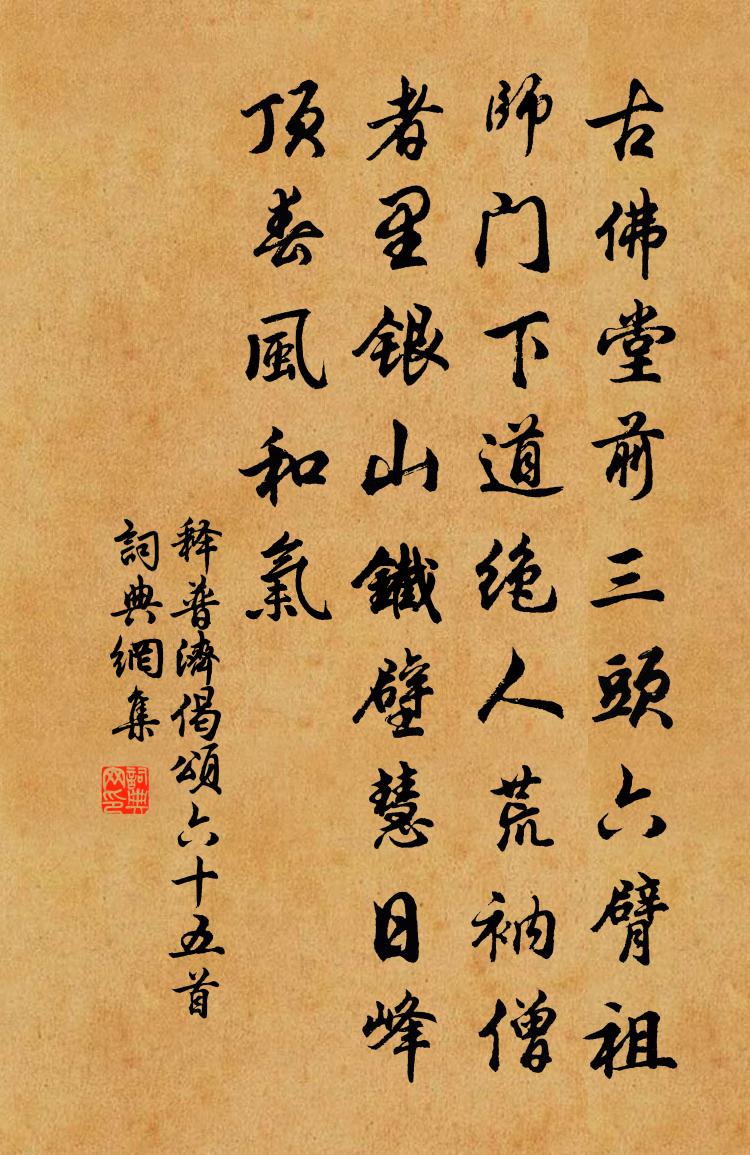 古佛堂前三頭六臂祖
師门下道绝人荒衲僧
者里銀山鐵壁慧日峰
頂春風和氣
释普濟偈頌六十五首
詞典網集
詞典
网印